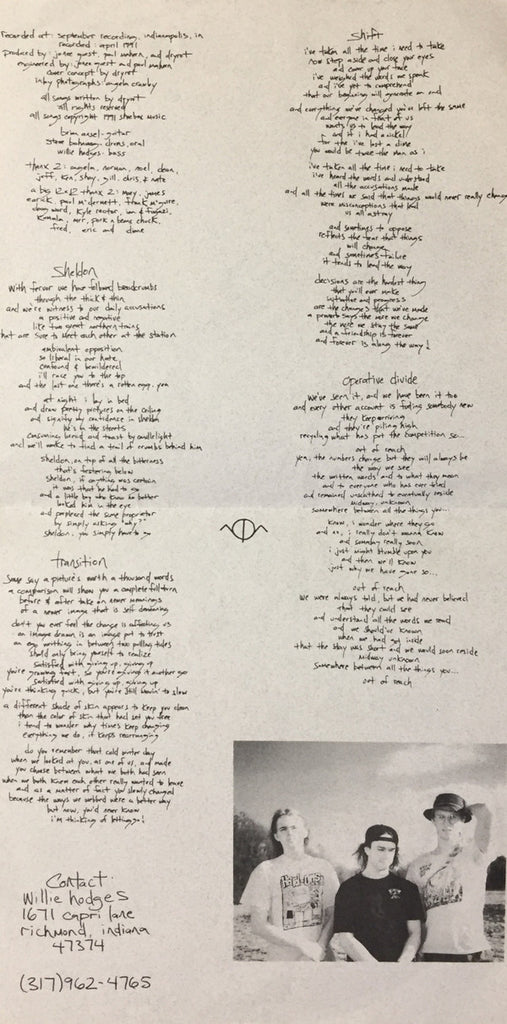 recorded at: september recording, indianapolis, in
recorded: april 1991
produced by: jonee quest, paul mahern, and dryrot
engineered by: jonee quest and paul mahern
cover concept by dryrot
inlay photographs: angela
all songs written by dryrot
all rights restored
all songs copyright 1991 shebue music
brian axsel - guitar
steve bahaman - drums, oral
willie hodges - bass
thanx 2: angela, norman, noel, dean,
jeff, kim, shoy, gill, chris, & nate
a big 12x12 thanx 2: mary, james
paul m'dermott, frank m'guire,
doug ward, kyle rector, ian d fugazi,
kamala, mrr, pork n beans chuck,
fred, eric and dane
Sheldon
With fervor we have followed breadcrumbs
through the thick & thin
and we're witness to our daily accusations
a positive and negative
like two great northern trains
that are sure to meet each other at the station
ambivalent opposition
so liberal in our hate
confound & bewildered
i'll race you to the top
and the last one there's a rotten egg, yen
at night i lay in bed
and draw pretty pictures on the ceiling
and signify my confidence in sheldon
he's in the streets
consuming bread and toast by candlelight
and we'll wake to find a trail of crumbs behind him
Sheldon, on top of all the bitterness
that's festering below
Sheldon, if anything was certain
it was that he had to go
and a little boy who knew no better
looked him in the eye
and perplexed the same proprietor
by simply asking "why?"
Sheldon, you simply have to go
transition
Some say a picture's worth a thousand words
a comparison will show you a complete full turn
before & after take on newer meanings
of a newer image that is self demeaning
don't you ever feel the change is affecting us
an image drawn is an image put to trust
an ego writhing in between two pulling tides
should only bring yourself to realize
satisfied with giving up, giving up
you're growing tired, so you're giving it another go
satisfied with giving up, giving up
you're thinking quick, but you're still showin' to slow
a different shade of skin appears to keep you clean
than the color of skin that had set you free
i tend to wonder why times keep changing
everything we do, it keeps rearranging
do you remember that cold winter day
when we looked at you, as one of us, and made
you choose between what we both had seen
when we both knew each other really wanted to leave
and as a matter of fact you slowly changed
because the ways we webbed were a better way
but now, you'd never know
i'm thinking of letting go!
Contact:
Willie hodges
1671 capri lane
richmond, indiana
47374
(317)962-4765
Shift
i've taken all the time i need to take
now step aside and close your eyes
and cover up your face
i've weighed the words we speak
and i've yet to comprehend
that our beginning will generate an end
and everything we've changed you've left the same
and everyone in front of us
wants us to lead the way
and if i had a nickel
for the i've lost a dime
you would be twice the man as i
i've taken all the time i need to take
i've heard the words and understand
all the accusations made
and all the times we said that things would never really change
were misconceptions that led
us all astray
and sometimes to oppose
reflects the fear that things
will change
and sometimes failure
it tends to lead the way
decisions are the hardest thing
that you'll ever make
initiative and progress
are the changes that we've made
a proverb says the more we change
the more we stay the same
and a friendship is forever
and forever is along the way!
operative divide
We've seen it, and we have been it too
and every other account is fading somebody new
they keep arriving
and they're piling high
recycling what has put the competition so...
out of reach
yen, the numbers change but they will always be
the way we see
the written words and to what they mean
and to everyone who has ever tried
and remained unscathed to eventually reside
midway, unknown
somewhere between all the things you...
know, i wonder where they go
and no, i really don't wanna know
and someday really soon
i just might stumble upon you
and then we'll know
just why we have gone so...
out of reach
We were always told, but we had never believed
that they could see
and understand all the words we read
and we should've known
when we had got inside
that the stay was short and we would soon reside
midway unknown
Somewhere between all the things you...
out of reach